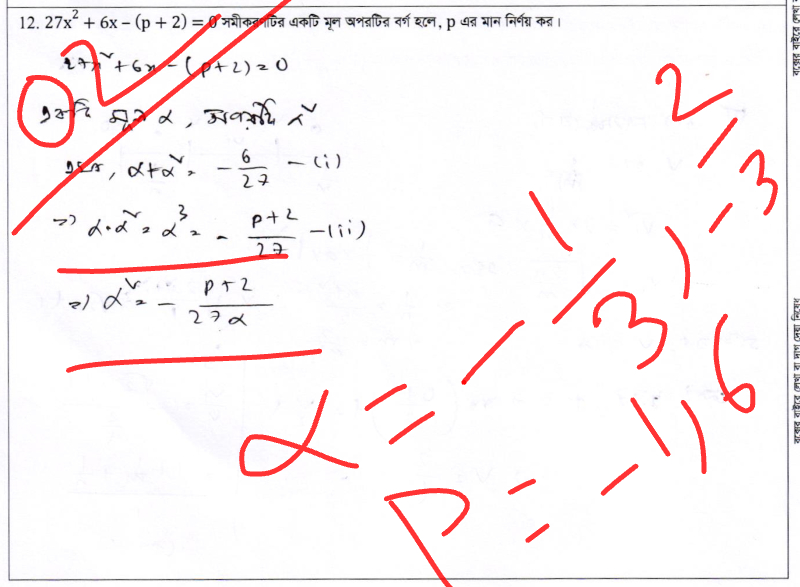 12. 27x² + 6x – (p + 2) = 0 সমীকরণটির একটি মূল অপরটির বর্গ হলে, p এর মান নির্ণয় কর।
27x² + 6x - (p+2) = 0
একটি মূল α, অপরটি α²
α + α² = - 6/27 - (i)
=> α · α² = α³ = - (p+2)/27 - (ii)
=> α² = - (p+2)/27α
2/-3
α = - 1/3,
p = -1, 6
বক্সের বাইরে লেখা বা দাগ দেয়া নিষেধ